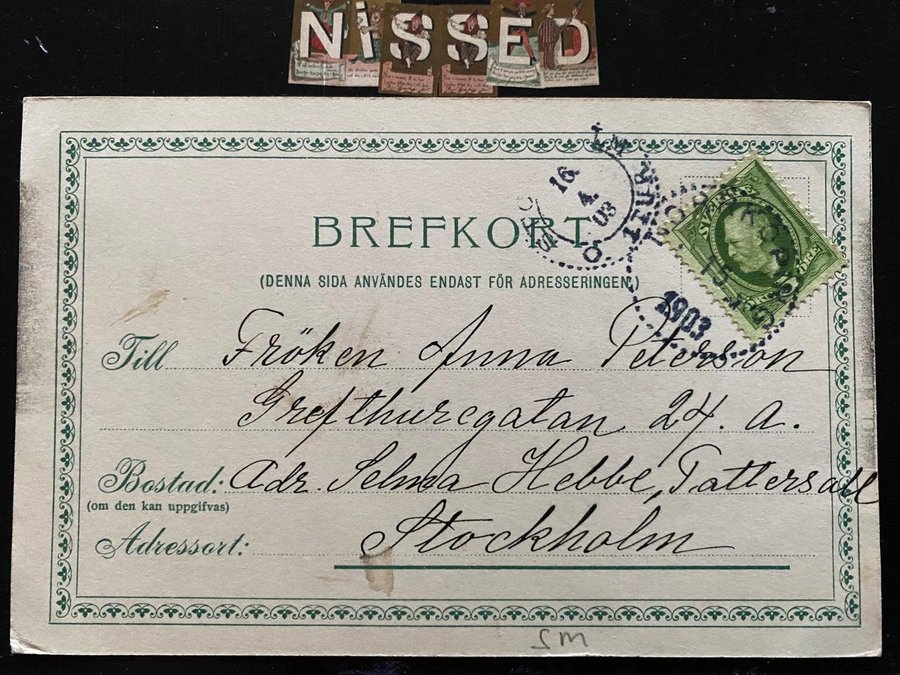 NISSED
16
4.
03
KÖPING
15
1903
BREFKORT
(DENNA SIDA ANVÄNDES ENDAST FÖR ADRESSERINGEN.)
Till Fröken Anna Peterson
Grefthuregatan 24. a.
Bostad: Adr. Selma Hebbe, Tattersall
(om den kan uppgifvas)
Adressort: Stockholm
SM